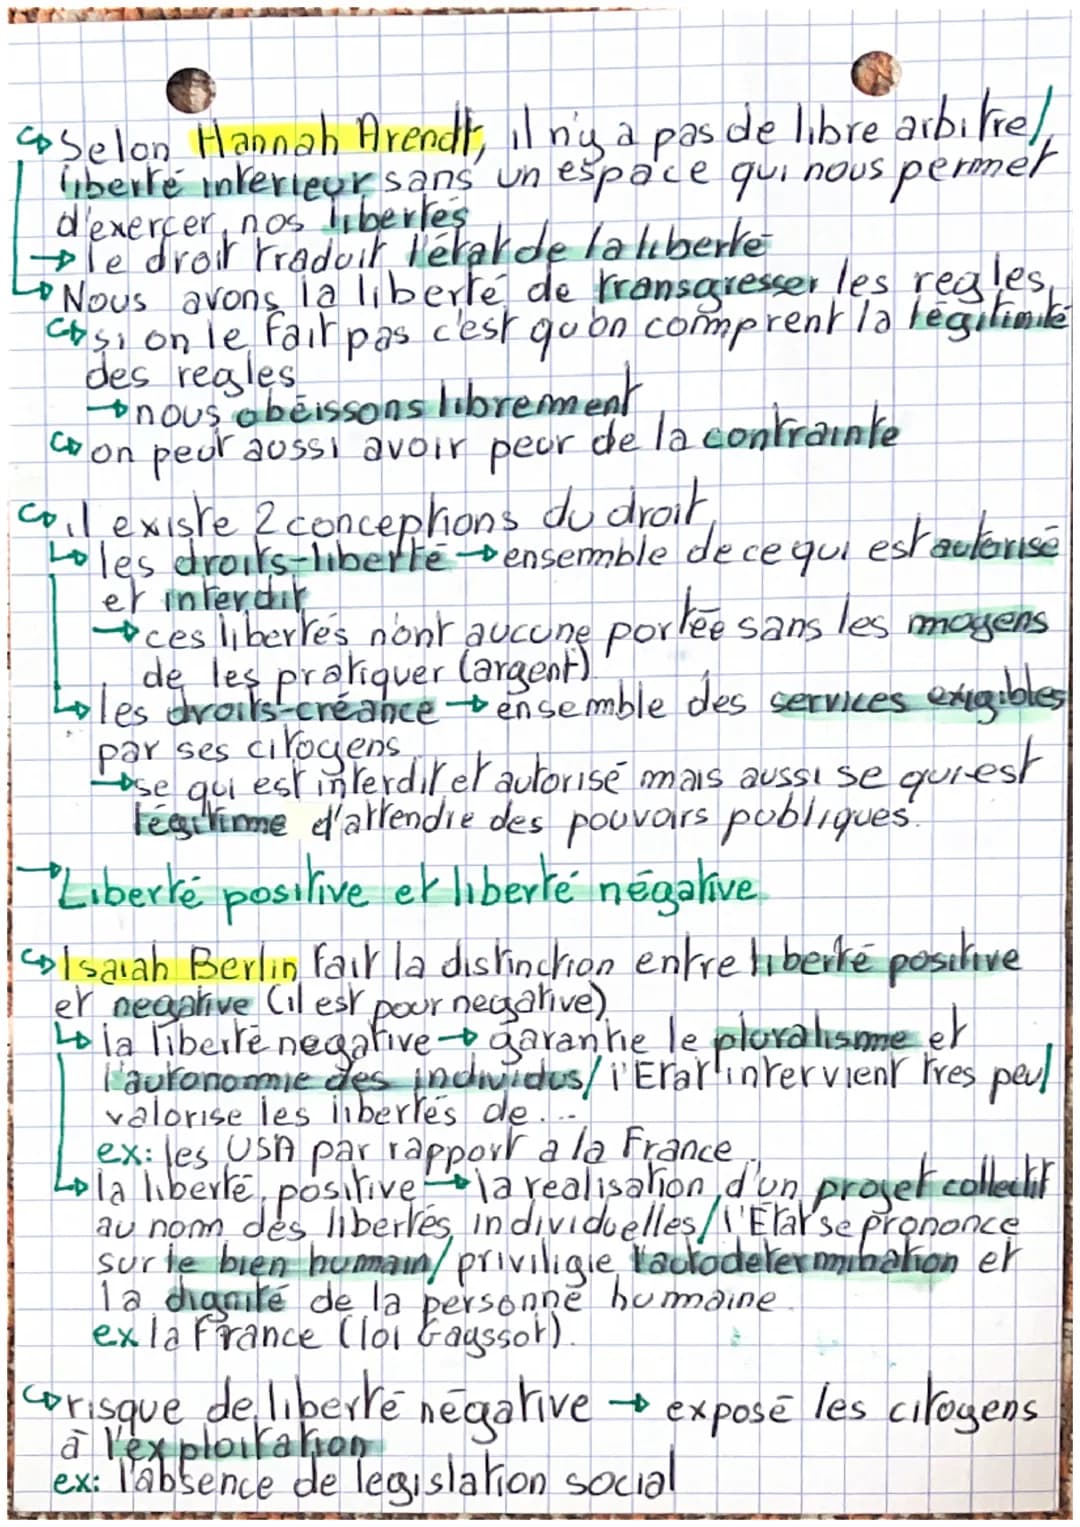 ↳ Selon Hannah Arendt, il n'y a pas de libre arbitre/
liberté interieur sans un espace qui nous permet
d'exercer nos libertés
→ le droit traduit l'état de la liberté
↳ Nous avons la liberté de transgresser les regles
↳ si on le fait pas c'est qu'on comprent la légitimité
des regles
→ nous obéissons librement
↳ on peut aussi avoir peur de la contrainte
↳ il existe 2 conceptions du droit
↳ les droits-liberté → ensemble de ce qui est autorisé
et interdit
→ ces libertés n'ont aucune portée sans les moyens
de les pratiquer (argent)
↳ les droits-créance → ensemble des services exigibles
par ses citoyens
→ se qui est interdit et autorisé mais aussi se qui est
légitime d'attendre des pouvoirs publiques.
→ Liberté positive et liberté négative
↳ Isaiah Berlin fait la distinction entre liberté positive
et negative (il est pour negative)
↳ la liberté negative → garantie le pluralisme et
l'autonomie des individus/ l'Etat intervient tres peu/
valorise les libertés de...
ex: les USA par rapport a la France
↳ la liberté positive → la realisation d'un projet collectif
au nom des libertés individuelles/ l'Etat se prononce
sur le bien humain/ priviligie l'autodetermination et
la dignité de la personne humaine
ex la France (loi Gayssot).
↳ risque de liberté négative → exposé les citoyens
à l'exploitation
ex: l'absence de legislation social